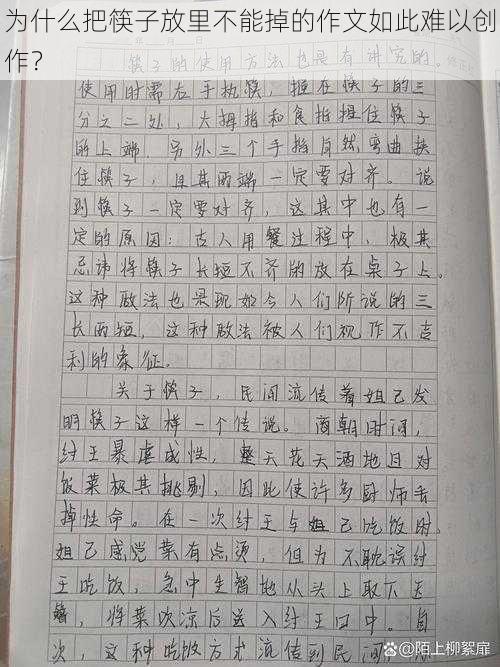 为什么把筷子放里不能掉的作文如此难以创
作？
筷子的使用方法也是有讲究的。
使用时需右手执筷，握在筷子的三
分之二处，大拇指和食指捏住筷子
的上端，另外三个手指自然弯曲扶
住筷子，且其两端一定要对齐。说
到筷子一定要对齐，这其中也有一
定的原因：古人用餐过程中，极其
忌讳将筷子长短不齐的放在桌子上。
这种做法也是现如今人们所说的三
长两短，这种做法被人们视作不吉
利的象征。
关于筷子，民间流传着妲己发
明筷子这样一个传说。商朝时间，
纣王暴虐成性，整天花天酒地且对
饭菜极其挑剔，因此使许多厨师丢
掉性命。在一次纣王与妲己吃饭时，
妲己感觉菜有点烫，但为不耽误纣
王吃饭，急中生智地从头上取下玉
簪，将菜吹凉后送入纣王口中。自
次，这种吃饭方式流传到民间，
知乎 @陌上柳絮扉